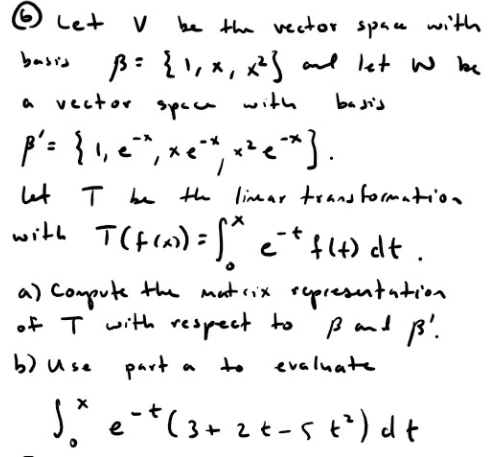 ⑥ Let V be the vector space with
basis β = {1, x, x²} and let W be
a vector space with basis
β' = {1, e⁻ˣ, xe⁻ˣ, x²e⁻ˣ}.
Let T be the linear transformation
with T(f(x)) = ∫₀ˣ e⁻ᵗ f(t) dt.
a) Compute the matrix representation
of T with respect to β and β'.
b) Use part a to evaluate
∫₀ˣ e⁻ᵗ (3 + 2t - 5t²) dt